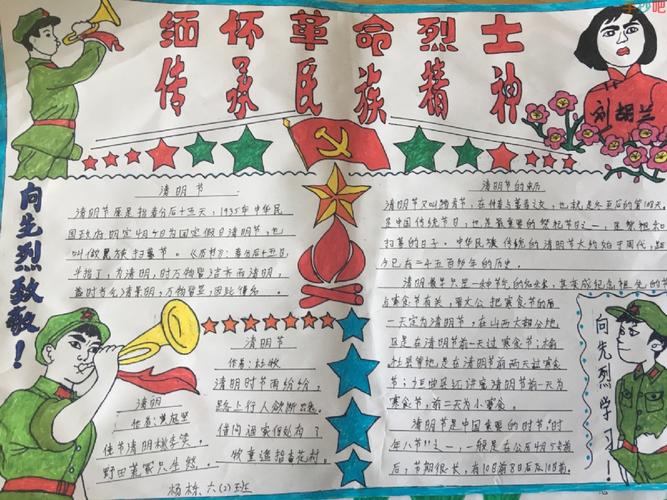 缅怀革命烈士
传承民族精神
刘胡兰
向先烈致敬！
清明节
清明节原是指春分后十五天，1935年中华民
国政府明定4月5日为国定假日清明节，也
叫做民族扫墓节。《历书》：春分后十五日，
斗指丁，为清明，时万物皆洁齐而清明，
盖时当气清景明，万物皆显，因此得名。
清明节的来历
清明节又叫踏青节，在仲春与暮春之交，也就是冬至后的第108天。
是中国传统节日，也是最重要的祭祀节日之一，是祭祖和
扫墓的日子。中华民族传统的清明节大约始于周代，距
今已有二千五百多年的历史。
清明最早只是一种节气的名称，其变成纪念祖先的节
点寒食节有关，晋文公把寒食节的后
一天定为清明节，在山西大部分地
区是在清明节前一天过寒食节；榆
社县等地是在清明节前两天过寒
食节；垣曲还讲究清明节前一天为
寒食节，前二天为小寒食。
清明节是中国重要的时节“时
年八节”之一，一般是在公历4月5号前
后，节期很长，有10日前8日后及10日前
清明节
作者：杜牧
清明时节雨纷纷，
路上行人欲断魂。
借问酒家何处有？
牧童遥指杏花村。
清明
作者：黄庭坚
佳节清明桃李笑，
野田荒冢只生愁。
杨栋，六(2)班
向先烈学习！